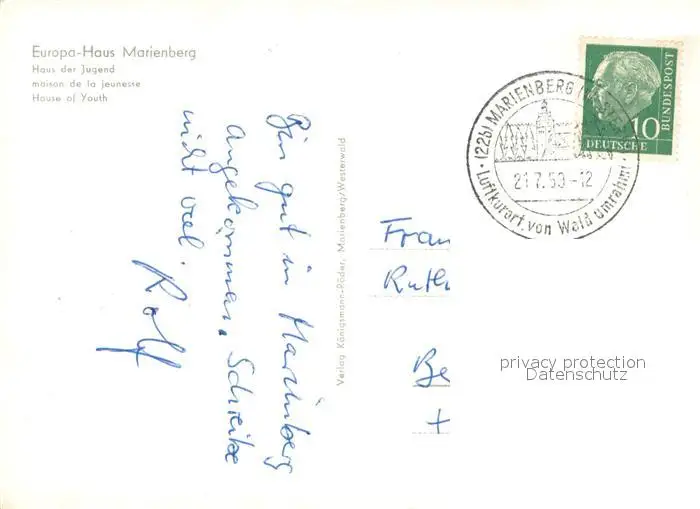 Europa-Haus Marienberg
Haus der Jugend
maison de la jeunesse
House of Youth
Bin gut in Marienberg
angekommen. Schreibe
nicht viel.
Rolf
Verlag Königsmann-Röder, Marienberg/Westerwald
(22b) MARIENBERG
21.7.59-12
Luftkurort von Wald umrahmt
10
DEUTSCHE
BUNDESPOST
Frau
Ruth
Be
privacy protection
Datenschutz